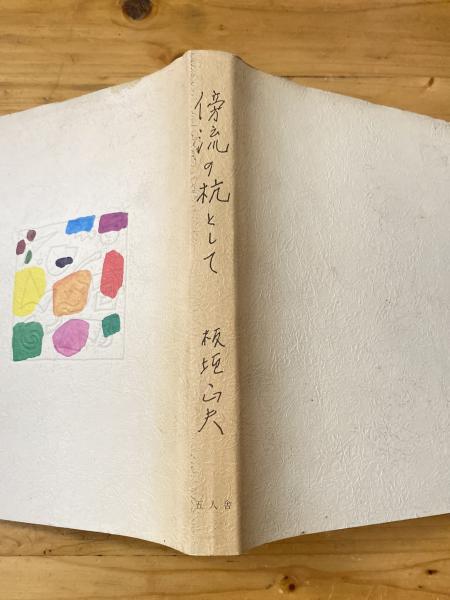 傍流の杭として
板垣正夫
五人舎